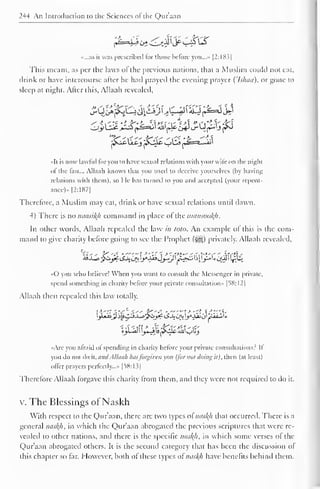 244 An Introduction to the Sciences of the Qur'aan
كما كتب على الذين من قبلكم
«...as it was prescribed for those before you...» [2:183]
This meant, as per the laws of the previous nations, that a Muslim could not eat,
drink or have intercourse after he had prayed the evening prayer ('Ishaa), or gone to
sleep at night. After this, Allaah revealed,
«It is now lawful for you to have sexual relations with your wife on the night
of the fast... Allaah knows that you used to deceive yourselves (by having
relations with them), so He has turned to you and accepted (your repent-
ance)» [2:187]
Therefore, a Muslim may eat, drink or have sexual relations until dawn.
4) There is no naasikh command in place of the mansookh.
In other words, Allaah repealed the law in toto. An example of this is the com-
mand to give charity before going to see the Prophet (ﷺ) privately. Allaah revealed,
«O you who believe! When you want to consult the Messenger in private,
spend something in charity before your private consultation» [58:12]
Allaah then repealed this law totally,
«Are you afraid of spending in charity before your private consultations? If
you do not do it, and Allaah has forgiven you (for not doing it), then (at least)
offer prayers perfectly...» [58:13]
Therefore Allaah forgave this charity from them, and they were not required to do it.
v. The Blessings of Naskh
With respect to the Qur'aan, there are two types of naskh that occurred. There is a
general naskh, in which the Qur'aan abrogated the previous scriptures that were re-
vealed to other nations, and there is the specific naskh, in which some verses of the
Qur'aan abrogated others. It is the second category that has been the discussion of
this chapter so far. However, both of these types of naskh have benefits behind them.